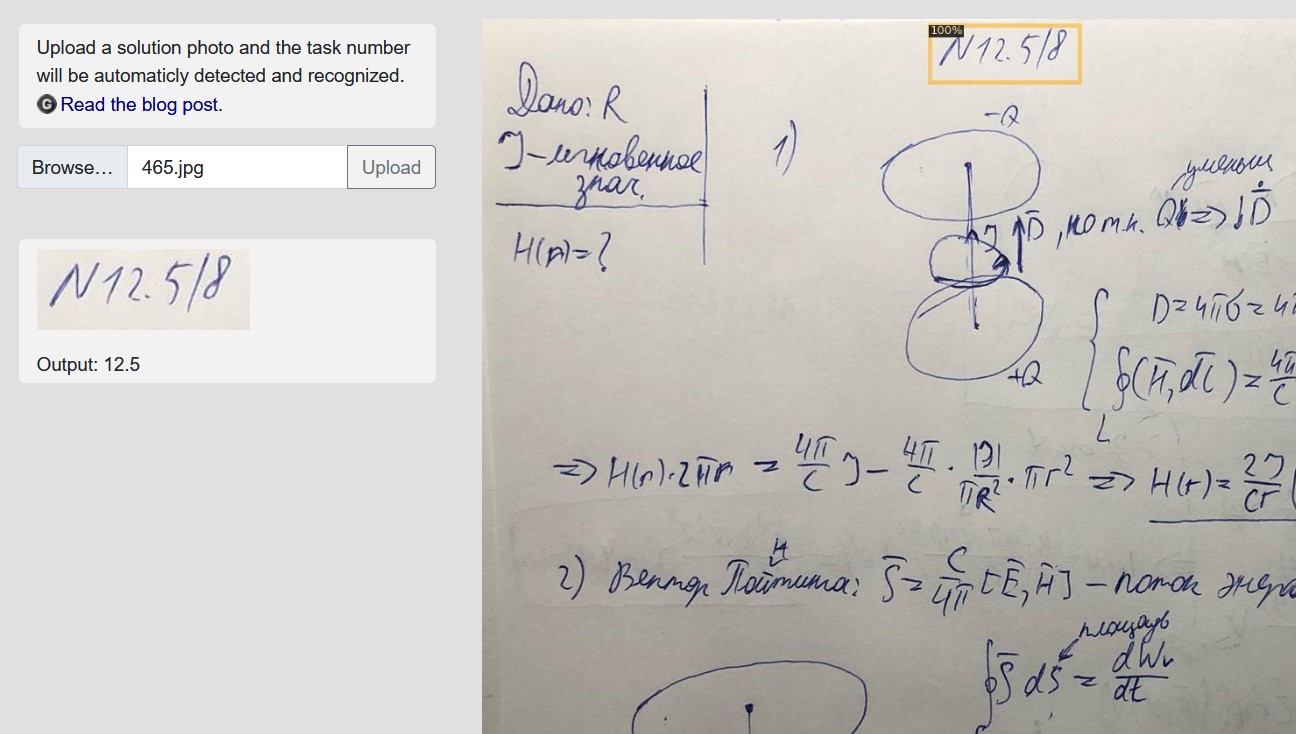 Upload a solution photo and the task number
will be automaticly detected and recognized.
G Read the blog post.
Browse… 465.jpg Upload
N12.5/8
Output: 12.5
100%
N12.5/8
Дано: R
J – мгновенное
знач.
H(r)=?
1)
-Q
J
D̄, пот к. Q↓ => ↓Ḋ
уменьш
+Q
D = 4πσ = 4π
∮(H̄, dl̄) = 4π/c
L
=> H(r)·2πr = 4π/c J – 4π/c · |J|/πR² · πr² => H(r) = 2J/cr (
2) Вектор Пойтинга: S̄ = c/4π [Ē, H̄] – поток энерг
н
площадь
∮S̄ dS̄ = dW/dt